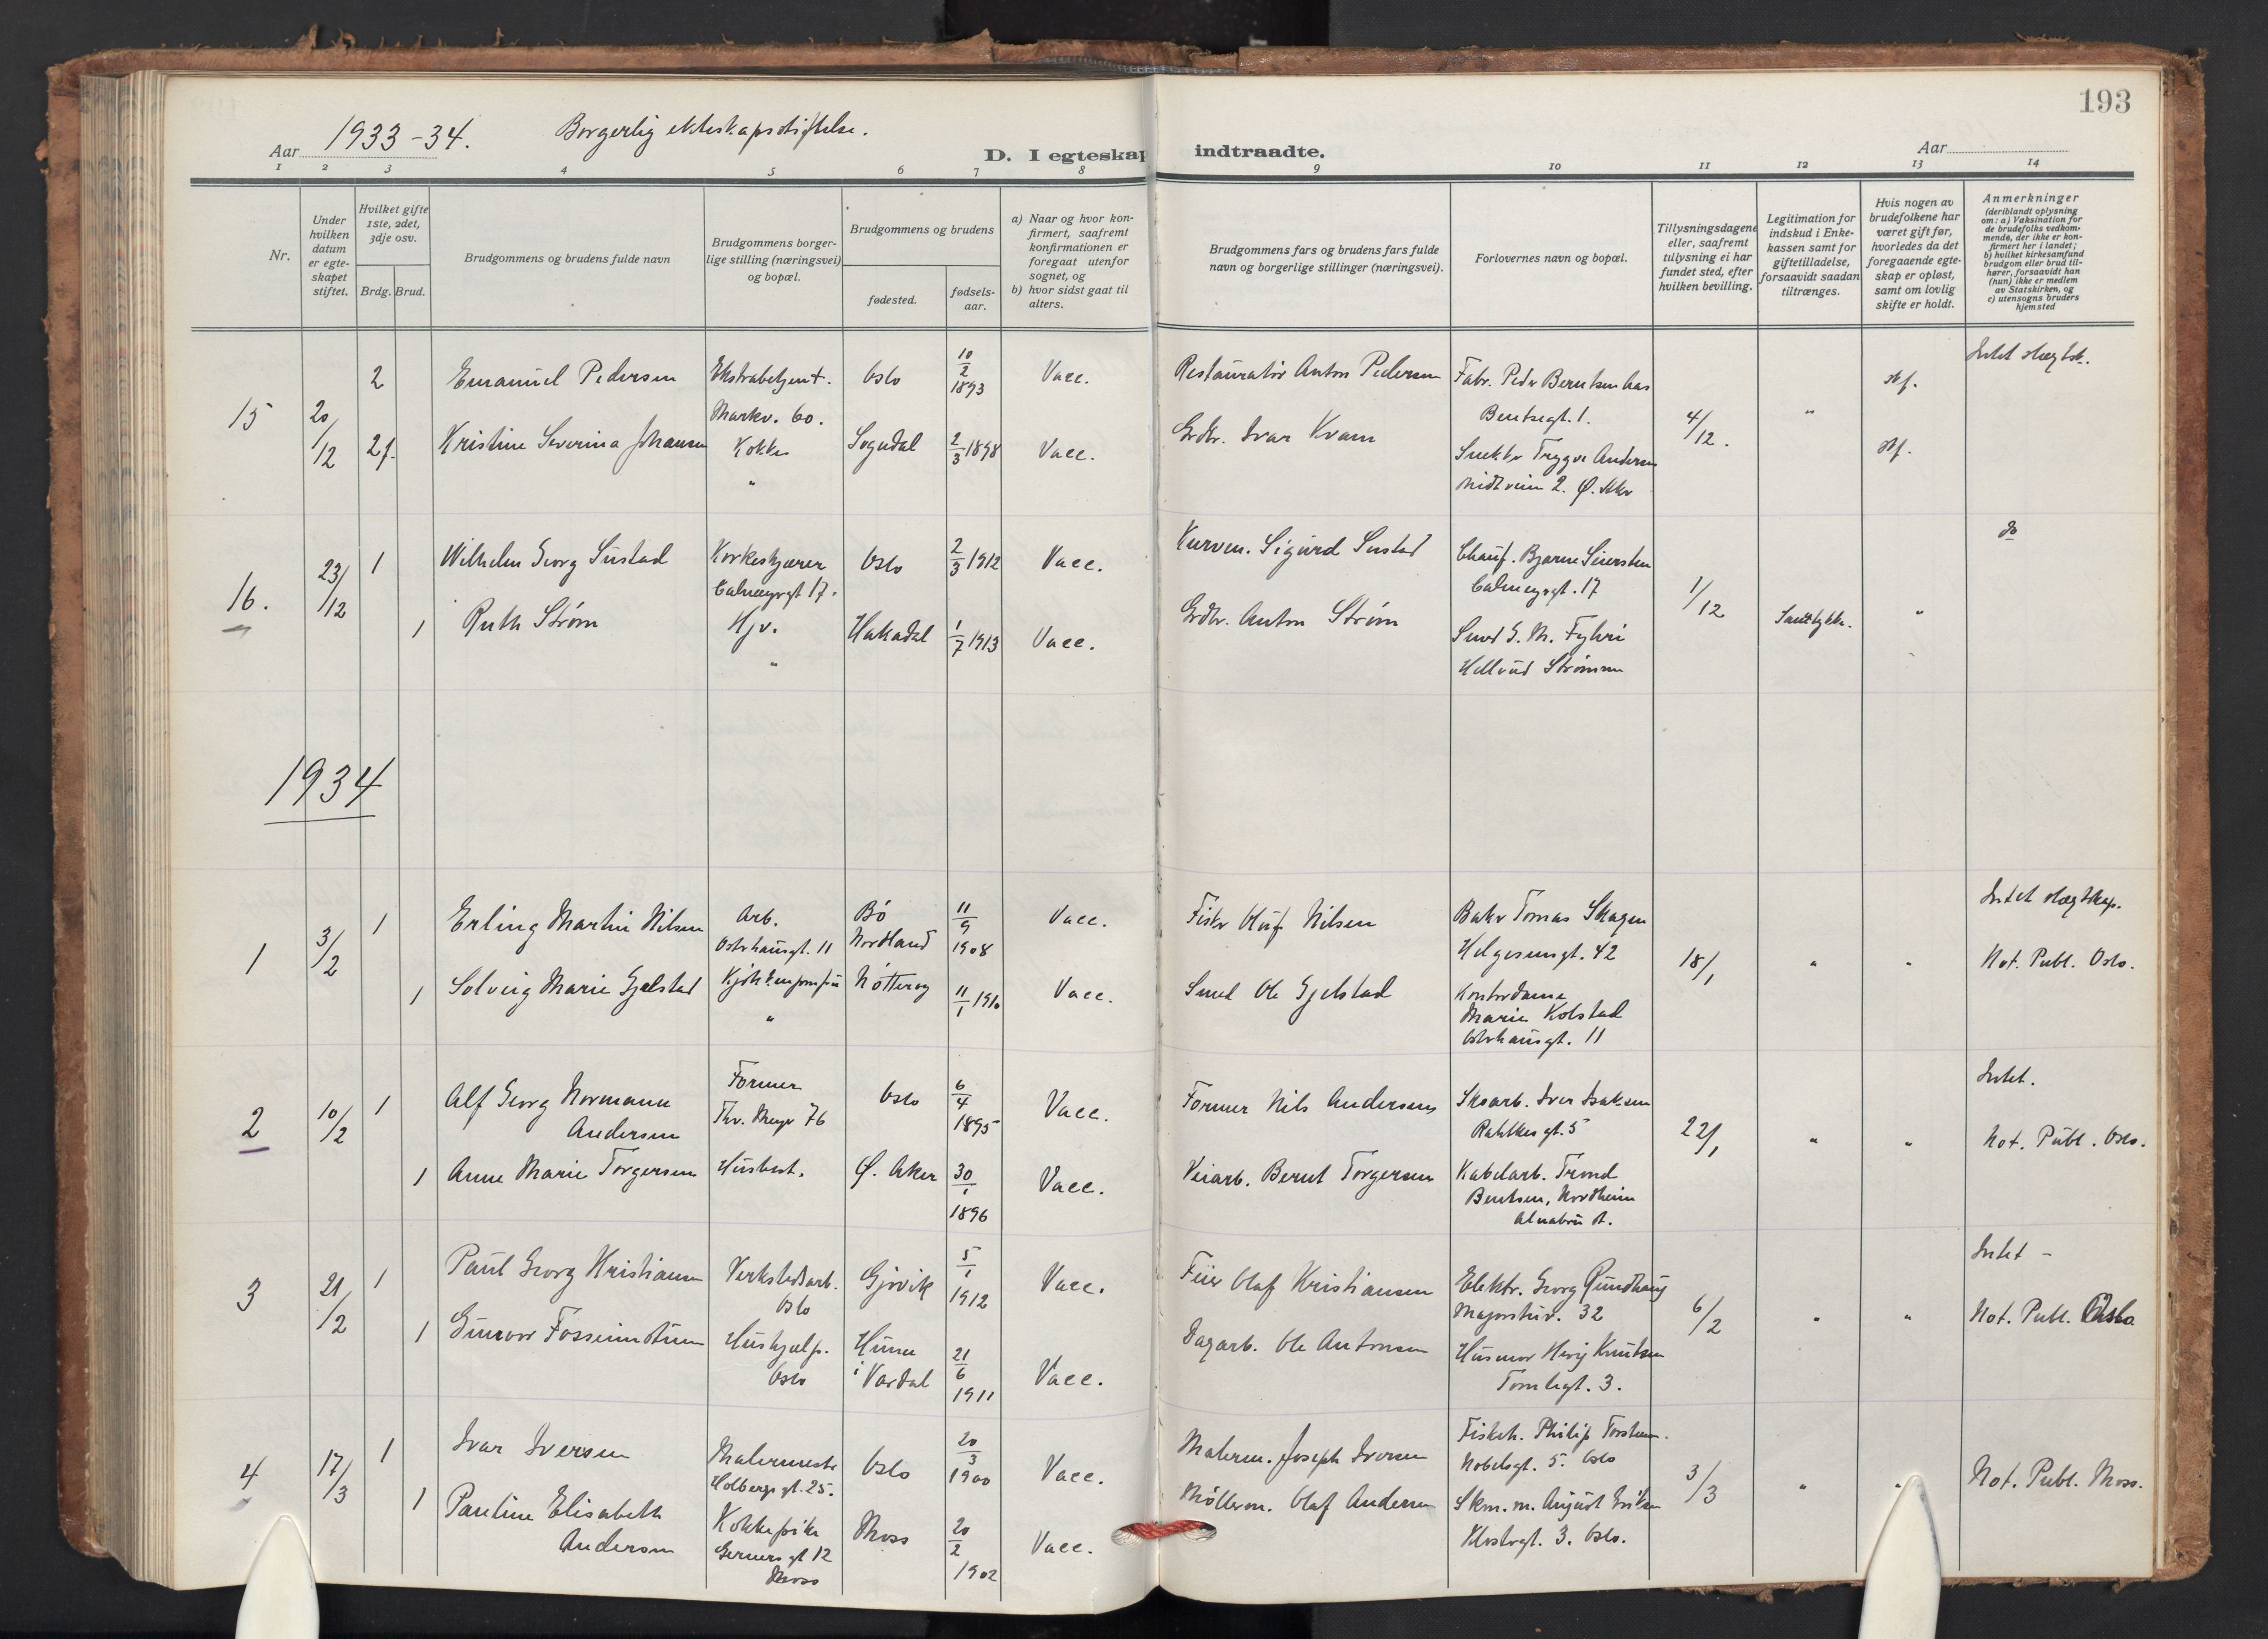 193
1933-34. Borgerlig ekteskapsstiftelse.
Aar
D. I egteskap indtraadte.
Aar
1 2 3 4 5 6 7 8 9 10 11 12 13 14
Nr.
Under
hvilken
datum
er egte-
skapet
stiftet.
Hvilket gifte
1ste, 2det,
3dje osv.
Brdg. Brud.
Brudgommens og brudens fulde navn
Brudgommens borger-
lige stilling (næringsvei)
og bopæl.
Brudgommens og brudens
fødested.
fødsels-
aar.
a) Naar og hvor kon-
firmert, saafremt
konfirmationen er
foregaat utenfor
sognet, og
b) hvor sidst gaat til
alters.
Brudgommens fars og brudens fars fulde
navn og borgerlige stillinger (næringsvei).
Forlovernes navn og bopæl.
Tillysningsdagene
eller, saafremt
tillysning ei har
fundet sted, efter
hvilken bevilling.
Legitimation for
indskud i Enke-
kassen samt for
giftetilladelse,
forsaavidt saadan
tiltrænges.
Hvis nogen av
brudefolkene har
været gift før,
hvorledes da det
foregaaende egte-
skap er opløst,
samt om lovlig
skifte er holdt.
Anmerkninger
(deriblandt oplysning
om: a) Vaksination for
de brudefolks vedkom-
mende, der ikke er kon-
firmert her i landet;
b) hvilket kirkesamfund
brudgom eller brud til-
hører, forsaavidt han
(hun) ikke er medlem
av Statskirken, og
c) utensogns bruders
hjemsted
15 20/12
2 Emanuel Pedersen Ekstrabetjent. Oslo 10/2 1893 Vacc. Restauratør Anton Pedersen Fabr. Peder Berntsen Aas
Markv. 60. Bentsegt. 1. 4/12. " sk f. Intet slægtsk.
2 f. Kristine Severina Johansen Kokke Sogndal 2/3 1898 Vacc. Grdbr. Ivar Kvam Snekker Trygve Andersen
" Midtveien 2. Ø. Aker sk f.
16. 23/12
1 Wilhelm Georg Sustad Korkeskjærer Oslo 2/3 1912 Vacc. Kurvm. Sigurd Sustad Chauf. Bjarne Seiersten do
Calmeyergt 17. Calmeyergt. 17 1/12 Samtykke. "
1 Ruth Strøm Hjv. Hakadal 1/7 1913 Vacc. Grdbr. Anton Strøm Smed G. M. Fylvei
" Hellerud Strømmen
1934
1 3/2
1 Erling Martin Nilsen Arb. Bö 11/9 1908 Vacc. Fisker Oluf Nilsen Baker Tomas Skagen Intet slægtskap.
Osterhausgt. 11 Nordland Helgesensgt. 42 18/1 " " Not. Publ. Oslo.
1 Solveig Marie Gjelstad Kjøkkenjomfru Nötterøy 11/1 1910 Vacc. Smed Ole Gjelstad Kontordame
" Marie Kolstad
Osterhausgt. 11
2 10/2
1 Alf Georg Normann Former Oslo 6/4 1895 Vacc. Former Nils Andersen Skoarb. Iver Isaksen Intet.
Andersen Thv. Meyer 76 Rathkes gt. 5 22/1 " " Not. Publ. Oslo.
1 Anne Marie Torgersen Husbest. Ø. Aker 30/1 1896 Vacc. Veiarb. Bernt Torgersen Kabelarb. Trond
Bentsen, Nordheim
Alnabru st.
3 21/2
1 Paul Georg Kristiansen Verkstedsarb. Gjøvik 5/1 1912 Vacc. Feier Olaf Kristiansen Elektr. Georg Rundhaug Intet -
Oslo Majorstuv. 32 6/2 " " Not. Publ. Oslo
1 Gunvor Fosseimstuen Hushjælp. Hunn 21/6 1911 Vacc. Dagarb. Ole Antonsen Husmor Herij Knutsen
Oslo i Vardal Tomtegt. 3.
4 17/3
1 Ivar Iversen Malermester Oslo 20/3 1900 Vacc. Malerm. Joseph Iversen Fiskeh. Philip Torstensen.
Holbergs gt. 25. Nobelsgt. 5. Oslo 3/3 " " Not. Publ. Moss.
1 Pauline Elisabeth Kokkepike Moss 20/2 1902 Vacc. Möllerm. Olaf Andersen Skm. m. August Eriksen
Andersen Gerners gt 12 Klostergt. 3. Oslo.
Moss